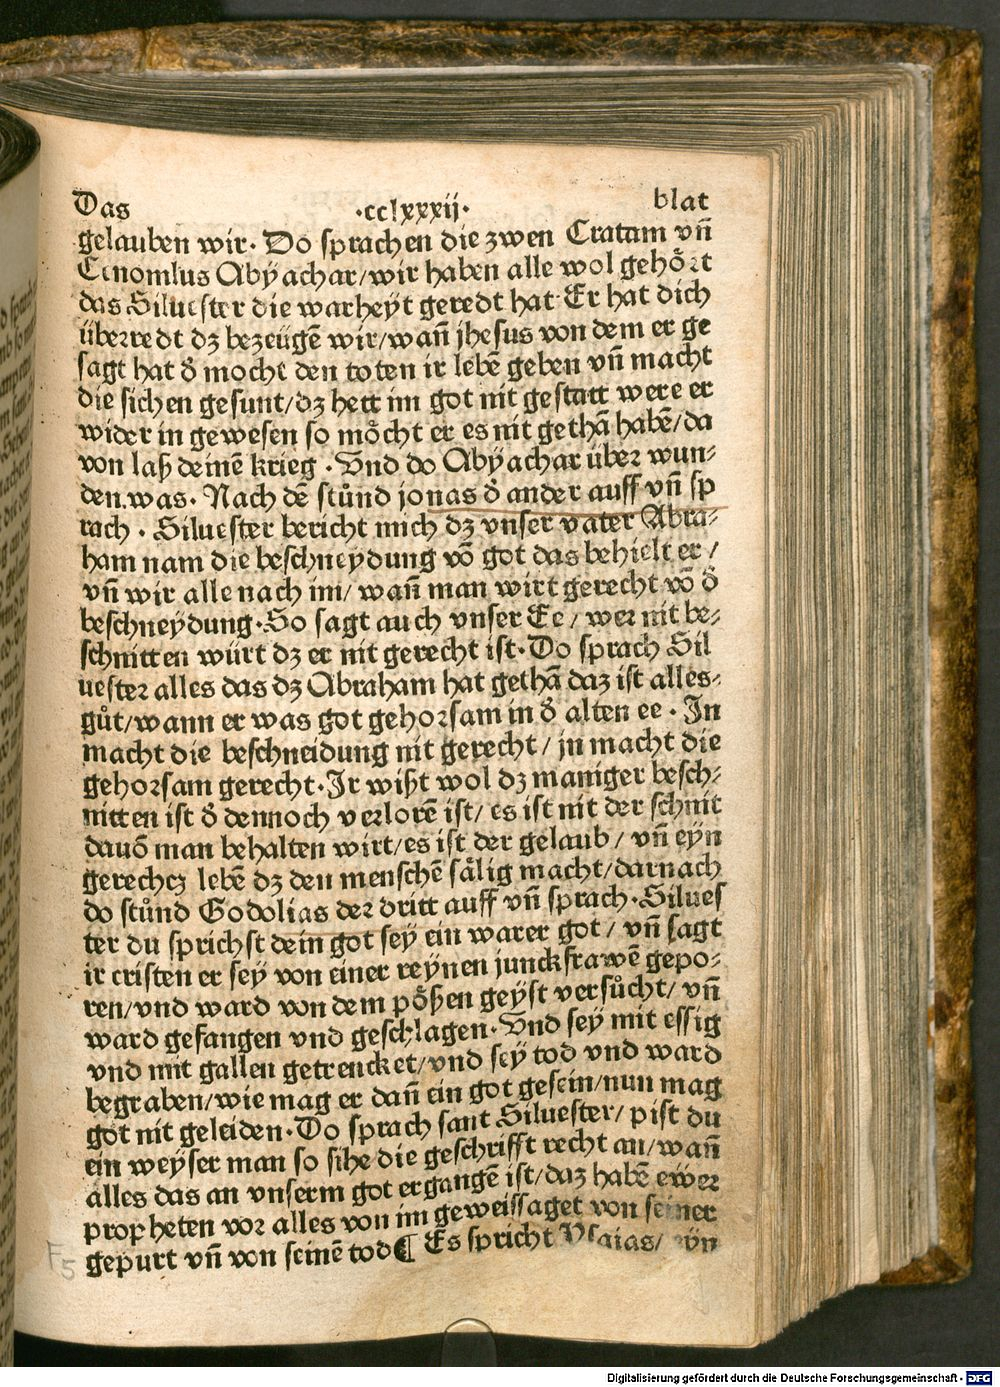 Das ·cclxxxij· blat
gelauben wir· Do sprachen die zwen Cratam vñ
Cenomlus Abÿachar/wir haben alle wol gehoͤꝛt
das Siluester die warheÿt geredt hat· Er hat dich
übeꝛredt dz bezeügē wir/wañ jhesus von dem er ge
sagt hat d̕ mocht den toten ir lebē geben vñ macht
die sichen gesunt/dz hett im got nit gestatt were er
wider in gewesen so moͤcht er es nit gethā habē/da
von laß deinē krieg · Vnd do Abÿachar über wun⸗
den.was· Nach dē stuͦnd jonas d̕ ander auff vñ sp
rach · Siluester bericht mich dz vnser vater Abra⸗
ham nam die beschneydung võ got das behielt er/
vñ wir alle nach im/wañ man wirt gerecht võ d̕
beschneÿdung·So sagt auch vnser Ee/weꝛ nit be⸗
schnitten würt dz er nit gerecht ist·Do sprach Sil
uesteꝛ alles das dz Abraham hat gethā daz ist alles⸗
guͦt/wann er was got gehoꝛsam in d̕ alten ee · In
macht die beschneidung nit gerecht/jn macht die
gehoꝛsam gerecht·Ir wißt wol dz maniger besch⸗
nitten ist d̕ dennoch verloꝛē ist/es ist nit der schnit
dauō man behalten wirt/es ist der gelaub/vñ eÿn
gerechtz lebē dz den menschē saͤlig macht/darnach
do stuͦnd Godolias deꝛ dritt auff vñ sprach·Silues
ter du sprichst dein got seÿ ein warer got/vñ sagt
ir cristen er seÿ von einer reÿnen junckfrawē gepo⸗
ren/vnd ward von dem poͤßen geÿst versuͦcht/vñ
ward gefangen vnd geschlagen·Vnd seÿ mit essig
vnd mit gallen getrencket/vnd seÿ tod vnd ward
begraben/wie mag er dañ ein got gesein/nun mag
got nit geleiden·Do sprach sant Siluester/pist du
ein weÿser man so sihe die geschrifft recht an/wañ
alles das an vnserm got ergangē ist/daz habē eẅeꝛ
propheten voꝛ alles von im geweissaget von seiner
gepurt vñ von seinē tod¶ Es spricht Ysaias/ eÿn
F5
Digitalisierung gefördert durch die Deutsche Forschungsgemeinschaft - DFG